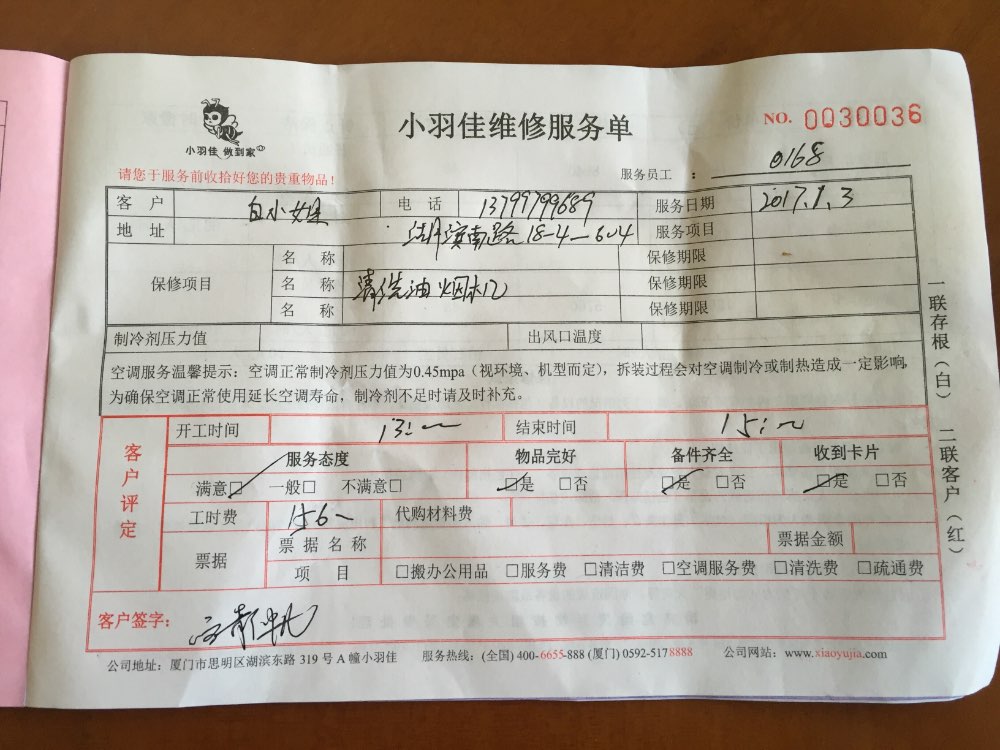 小羽佳 做到家
小羽佳维修服务单
NO. 0030036
请您于服务前收拾好您的贵重物品!
服务员工 : 0168
客 户 白小姐 电 话 13799799689 服务日期 2017.1.3
地 址 湖滨南路 18-4-604 服务项目
保修项目 名 称 保修期限
名 称 清洗油烟机 保修期限
名 称 保修期限
制冷剂压力值 出风口温度
空调服务温馨提示:空调正常制冷剂压力值为0.45mpa(视环境、机型而定),拆装过程会对空调制冷或制热造成一定影响,
为确保空调正常使用延长空调寿命,制冷剂不足时请及时补充。
客户评定
开工时间 13: 结束时间 15:
服务态度 物品完好 备件齐全 收到卡片
满意☑ 一般□ 不满意□ ☑是 □否 ☑是 □否 ☑是 □否
工时费 156 代购材料费
票据 票据名称 票据金额
项 目 □搬办公用品 □服务费 □清洁费 □空调服务费 □清洗费 □疏通费
客户签字:
公司地址:厦门市思明区湖滨东路 319 号 A 幢小羽佳 服务热线:(全国) 400-6655-888 (厦门) 0592-5178888 公司网站:www.xiaoyujia.com
一联存根(白) 二联客户(红)